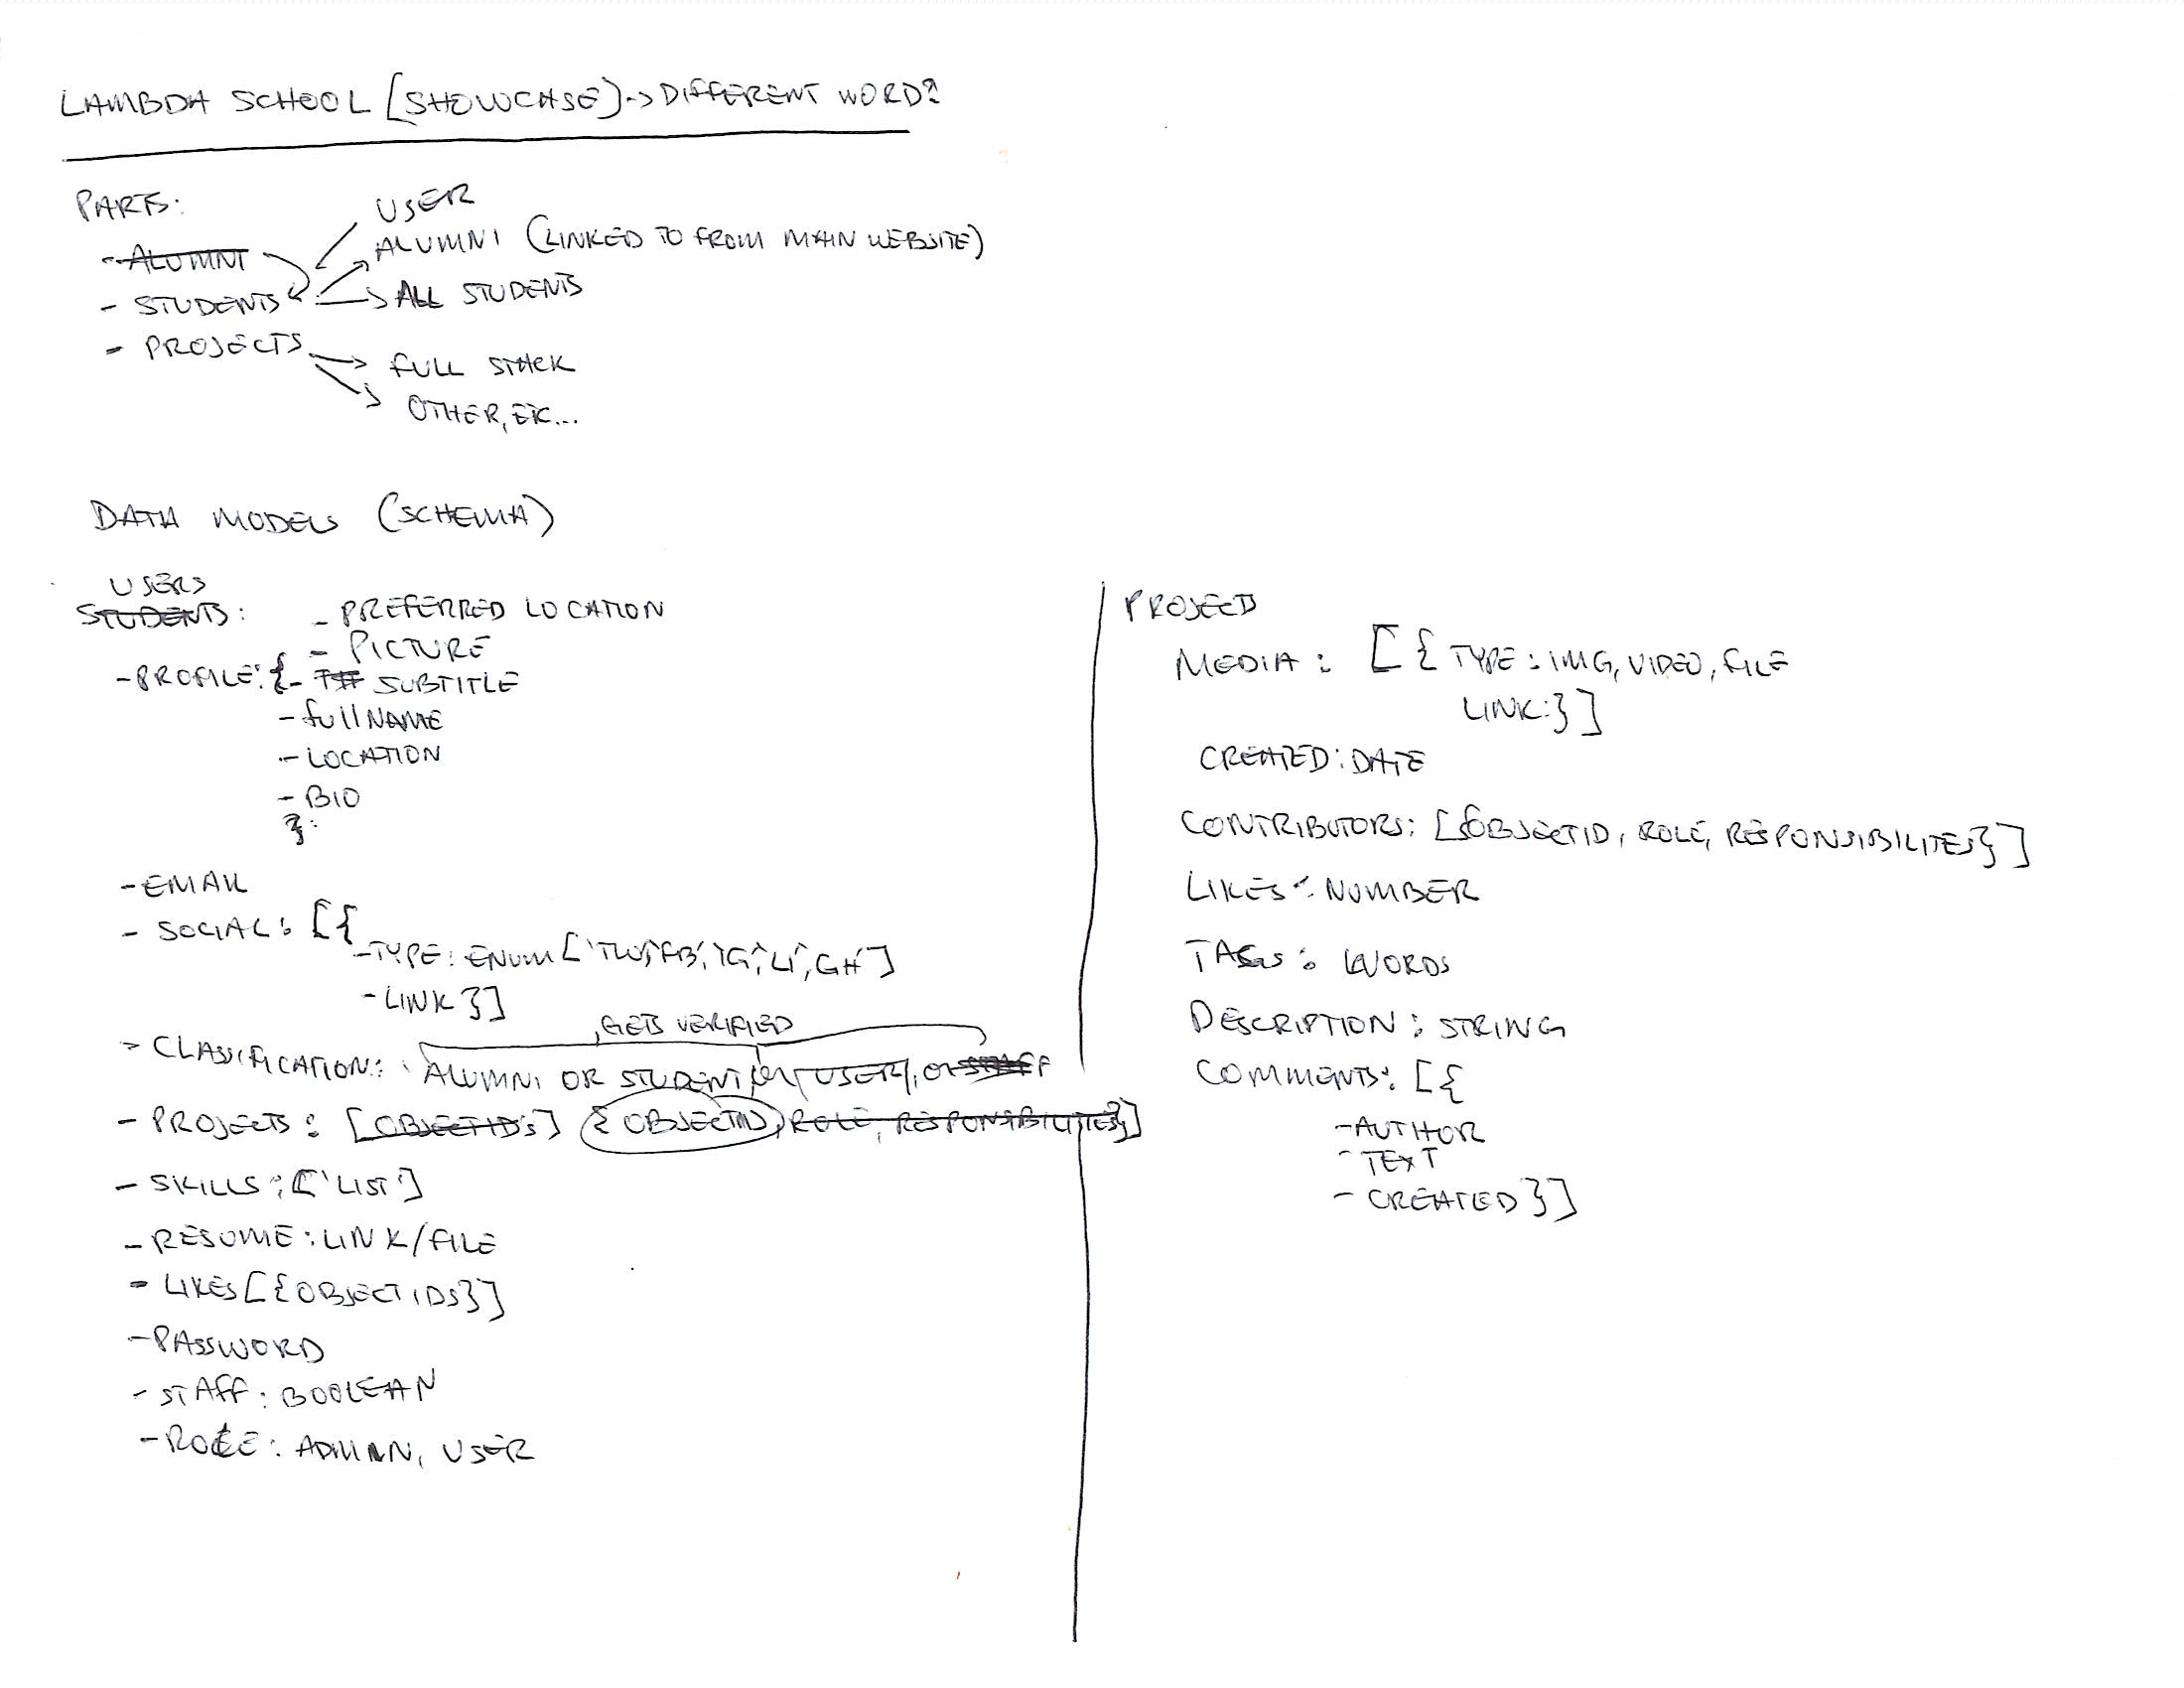 LAMBDA SCHOOL [SHOWCASE] -> DIFFERENT WORD?
PARTS:
USER
- ALUMNI
ALUMNI (LINKED TO FROM MAIN WEBSITE)
- STUDENTS
ALL STUDENTS
- PROJECTS
FULL STACK
OTHER, ETC...
DATA MODELS (SCHEMA)
USERS
STUDENTS:
- PREFERRED LOCATION
- PICTURE
- PROFILE: { - SUBTITLE
- fullNAME
- LOCATION
- BIO
}
- EMAIL
- SOCIAL: [{
- TYPE: ENUM ['TW', 'FB', 'IG', 'LI', 'GH']
- LINK }]
GETS VERIFIED
- CLASSIFICATION: ALUMNI OR STUDENT, OR USER, OR STAFF
- PROJECTS: [OBJECTID'S] {OBJECTID, ROLE, RESPONSIBILITIES}]
- SKILLS: ['LIST']
- RESUME: LINK/FILE
- LIKES [{OBJECTIDS}]
- PASSWORD
- STAFF: BOOLEAN
- ROLE: ADMIN, USER
PROJECTS
MEDIA: [{ TYPE: IMG, VIDEO, FILE
LINK: }]
CREATED: DATE
CONTRIBUTORS: [{OBJECTID, ROLE, RESPONSIBILITES}]
LIKES: NUMBER
TAGS: WORDS
DESCRIPTION: STRING
COMMENTS: [{
- AUTHOR
- TEXT
- CREATED }]